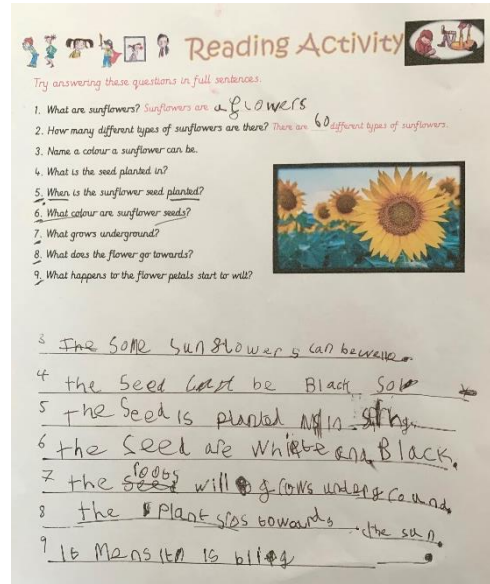 Reading Activity
Try answering these questions in full sentences.
1. What are sunflowers? Sunflowers are a flowers
2. How many different types of sunflowers are there? There are 60 different types of sunflowers.
3. Name a colour a sunflower can be.
4. What is the seed planted in?
5. When is the sunflower seed planted?
6. What colour are sunflower seeds?
7. What grows underground?
8. What does the flower go towards?
9. What happens to the flower petals start to wilt?
3 The Some sunflowers can be
4 the Seed be Black
5 The Seed is planted in
6 the Seed are white and Black.
7 the seed roots will grows underground.
8 the Plant towards the sun.
9 It is